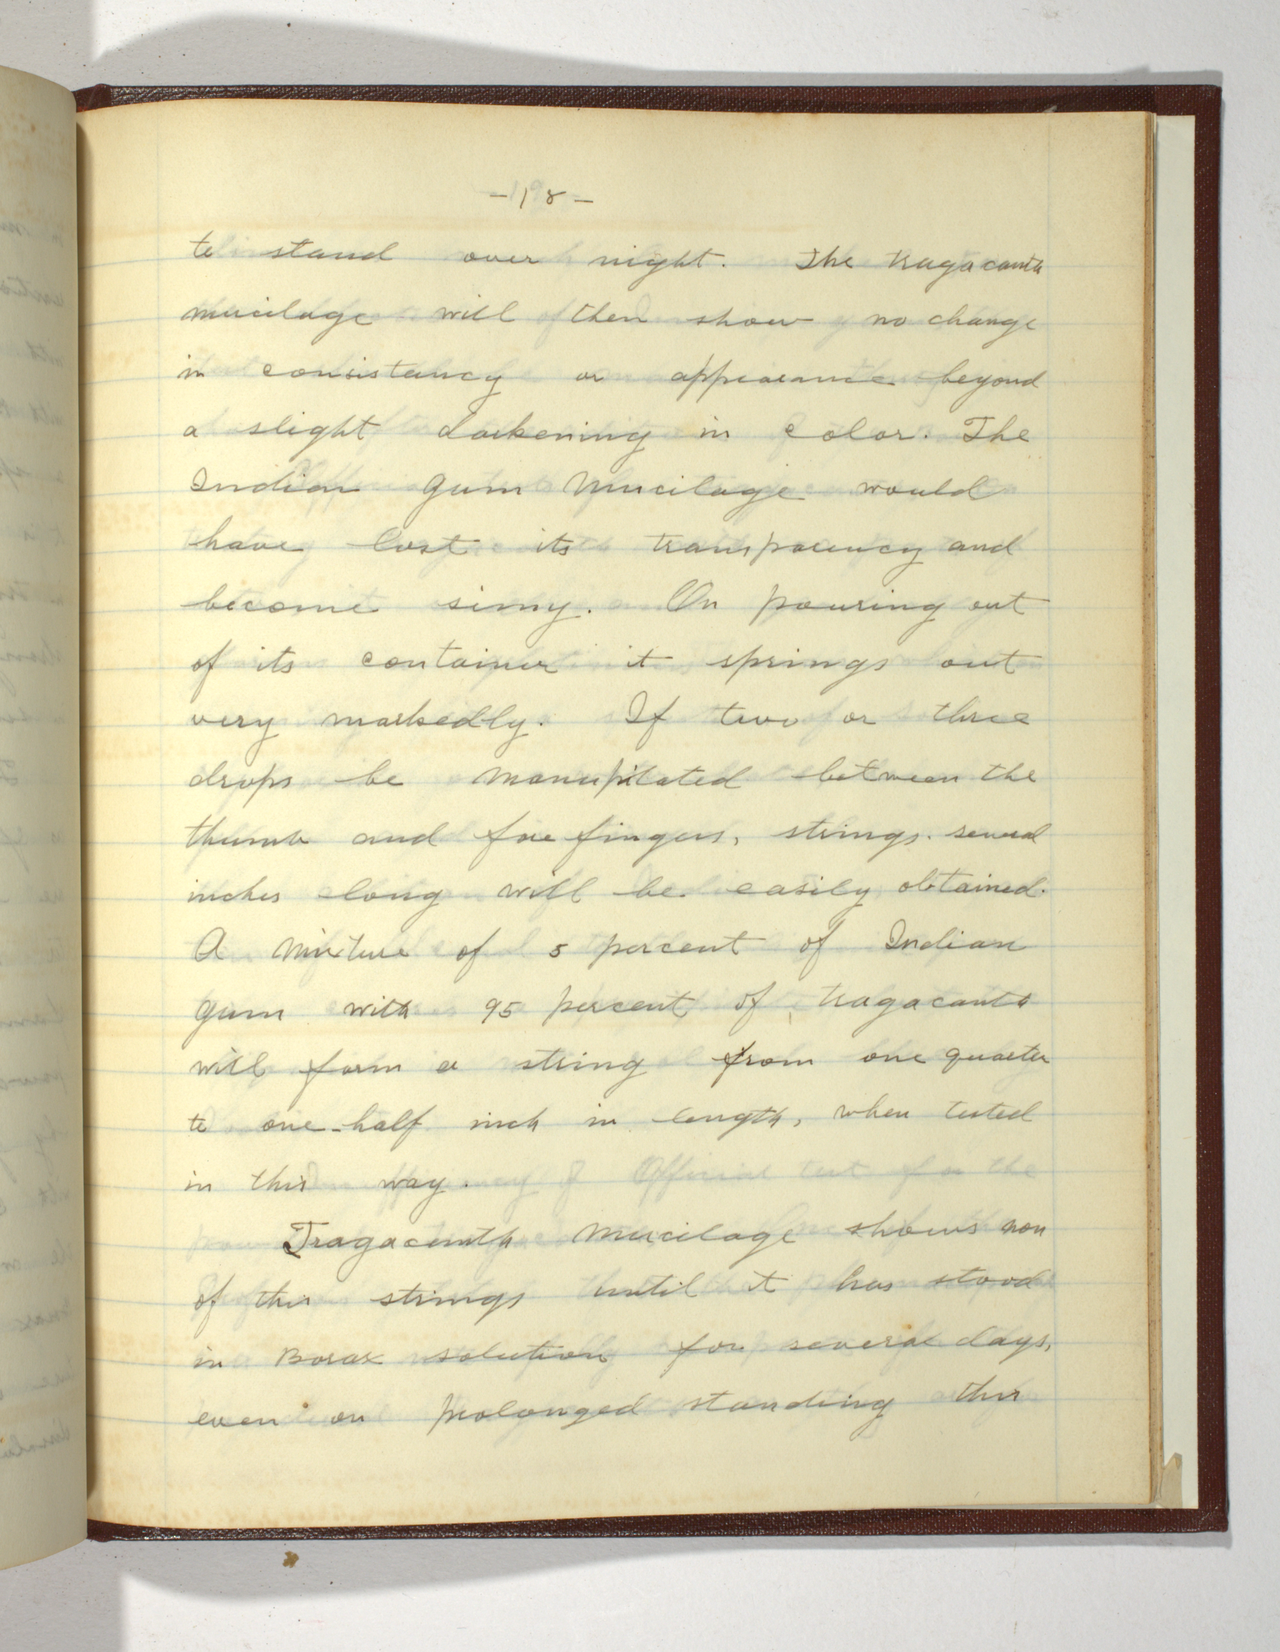 -18-
to stand over night. The tragacanth
mucilage will then show no change
in consistency or appearance beyond
a slight darkening in color. The
Indian Gum Mucilage would
have lost its transparency and
become simy. On pouring out
of its container it springs out
very markedly. If two or three
drops be manupilated between the
thumb and fore fingers, strings several
inches long will be easily obtained.
A Mixture of 5 percent of Indian
gum with 95 percent of tragacanth
will form a string from one quarter
to one-half inch in length, when tested
in this way.
Tragacanth Mucilage shows non
of this strings until it has stood
in Borax solution for several days,
even on prolonged standing this